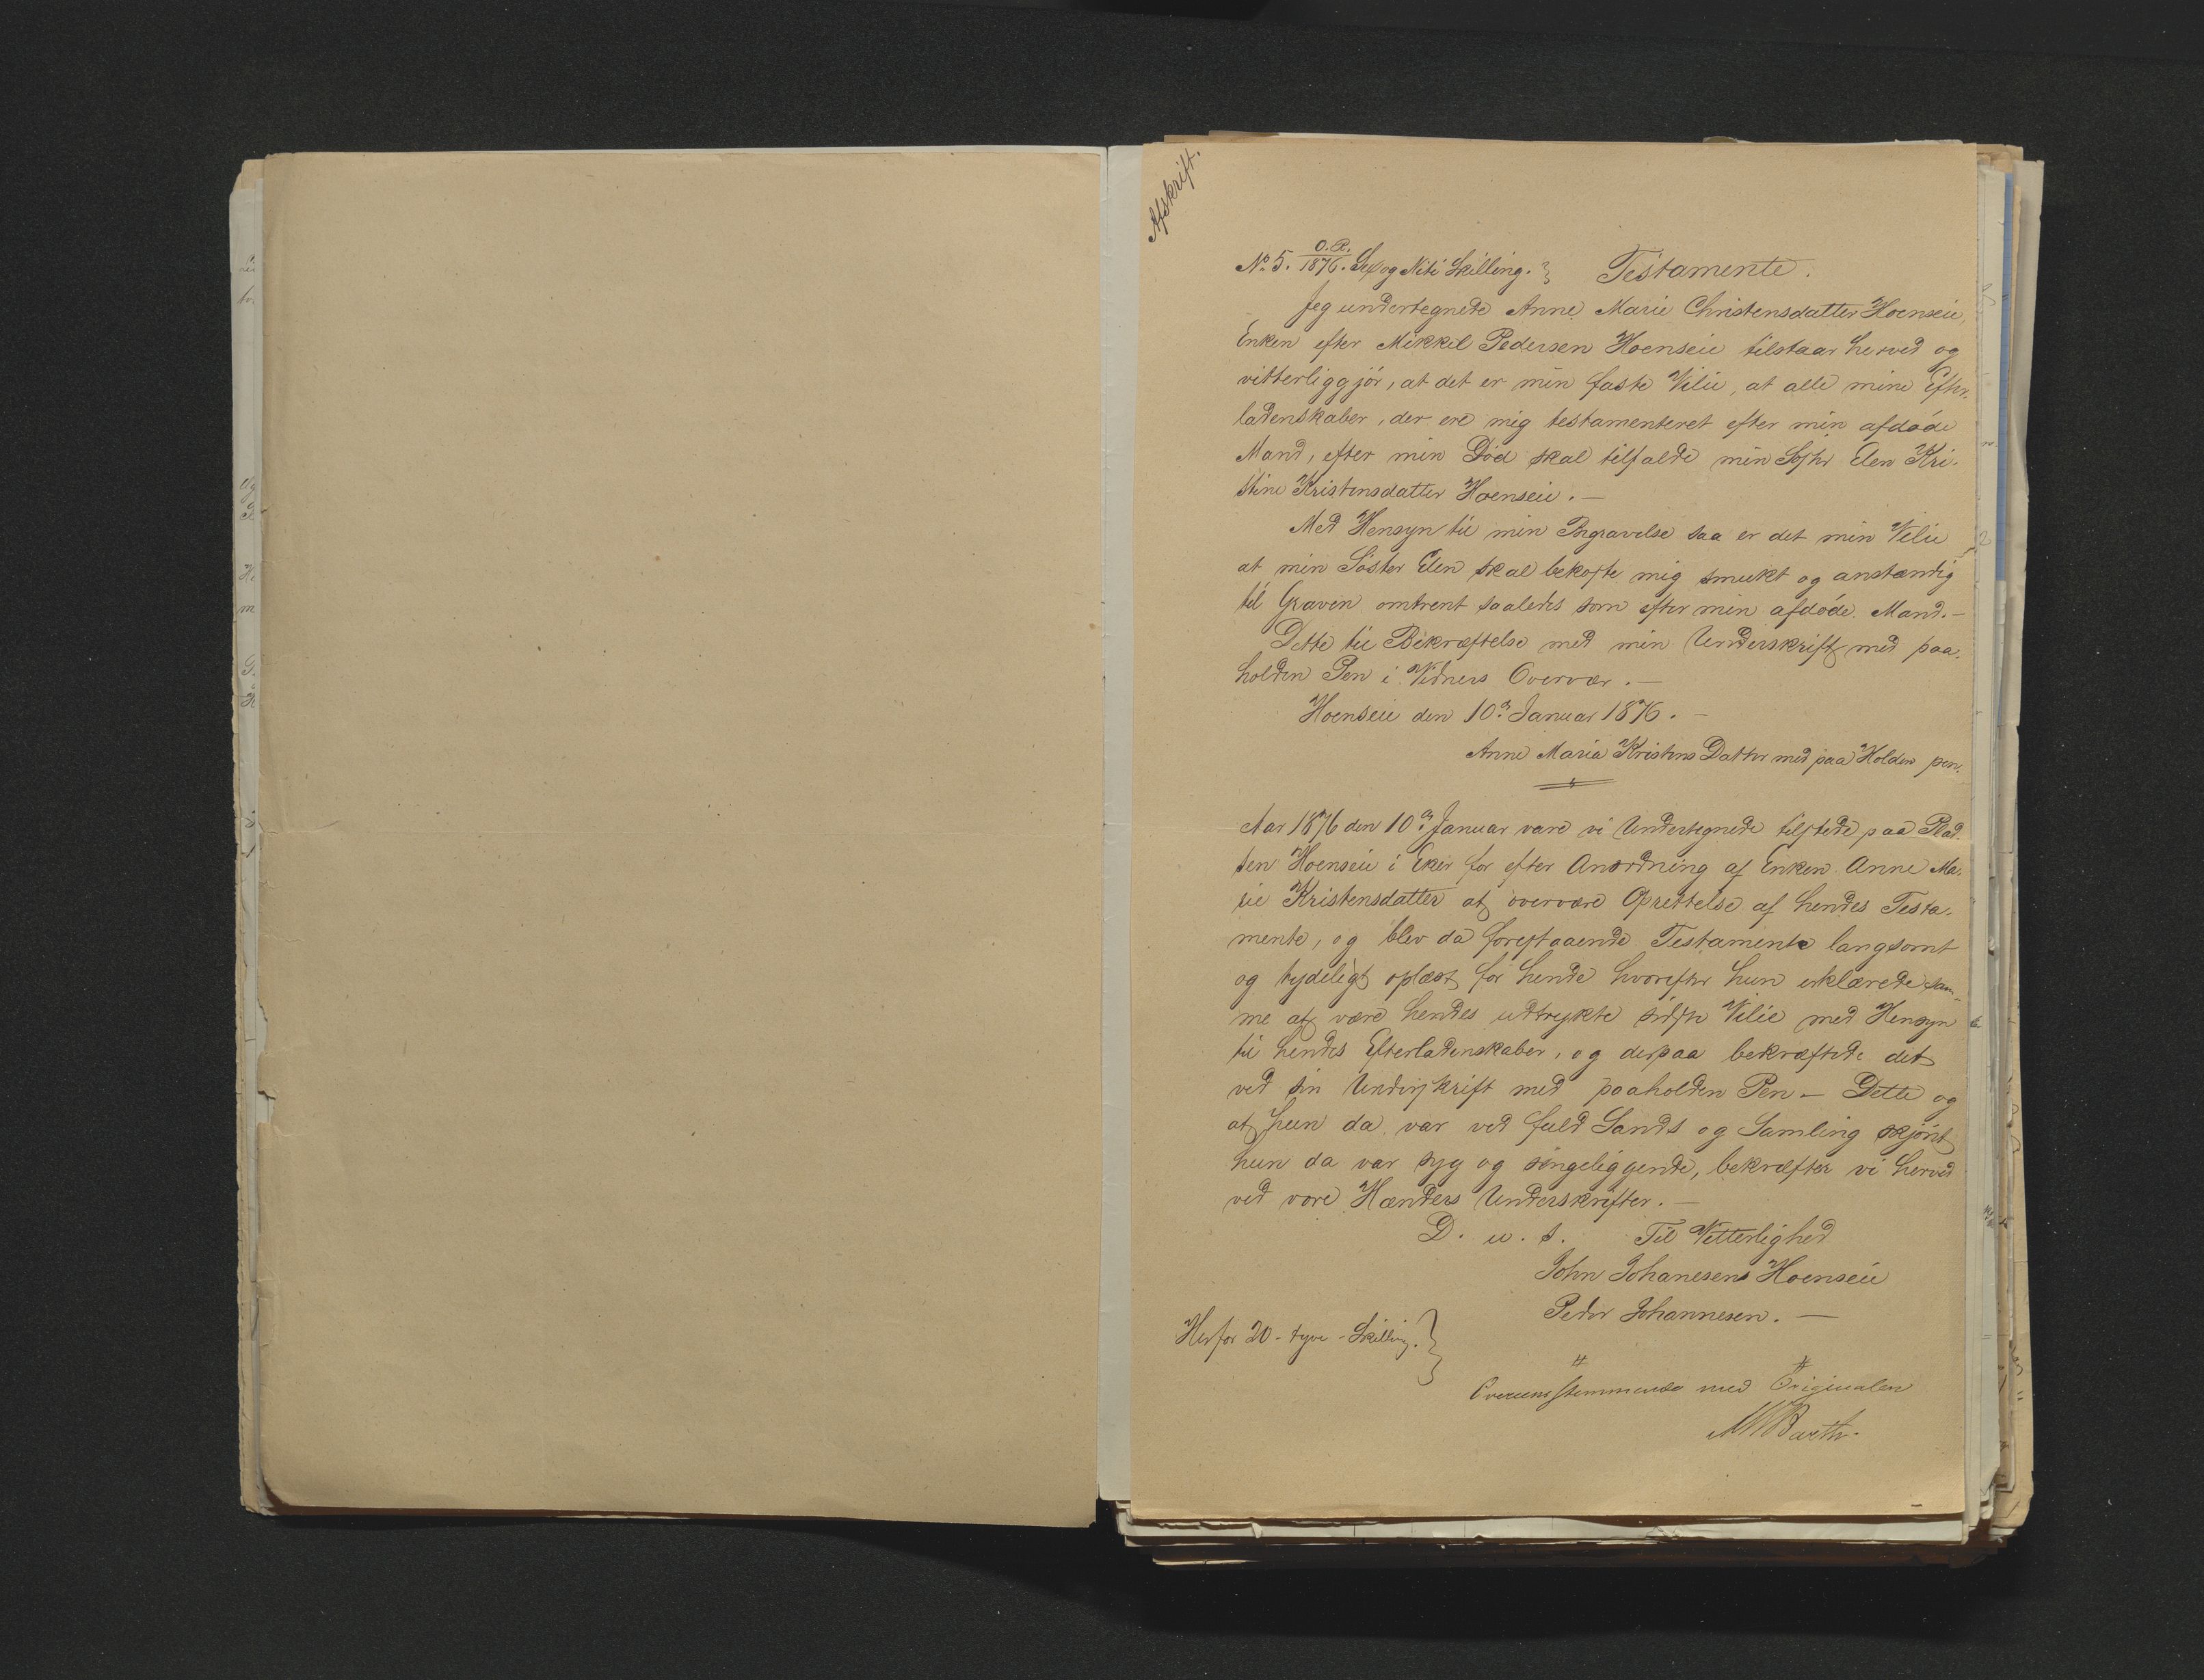 Afskrift.
No 5. O.R./1876. Sex og Niti Skilling. } Testamente.
Jeg undertegnede Anne Marie Christensdatter Hoenseie,
Enken efter Mikkel Pedersen Hoenseie tilstaar herved og
vitterliggjør, at det er min faste Vilie, at alle mine Efter-
ladenskaber, der ere mig testamenteret efter min afdøde
Mand, efter min Død skal tilfalde min Søster Elen Kri-
stine Kristensdatter Hoenseie. —
Med Hensyn til min Begravelse saa er det min Vilie
at min Søster Elen skal bekoste mig smukt og anstændig
til Graven omtrent saaledes som efter min afdøde Mand. —
Dette til Bekræftelse med min Underskrift med paa-
holden Pen i Vidners Overvær. —
Hoenseie den 10de Januar 1876. —
Anne Maria Kristens Datter med paa Holden pen.
Aar 1876 den 10de Januar vare vi Undertegnede tilstede paa Plad-
sen Hoenseie i Eker for efter Anordning af Enken Anne Ma-
rie Kristensdatter at overvære Oprettelse af hendes Testa-
mente, og blev da forestaaende Testamente langsomt
og tydeligt oplæst for hende hvorefter hun erklærede sam-
me at være hendes udtrykte sidste Vilie med Hensyn
til hendes Efterladenskaber, og derpaa bekræftede det
ved sin Underskrift med paaholden Pen — Dette og
at hun da var ved fuld Sands og Samling skjønt
hun da var syg og sengeliggende, bekræfter vi herved
ved vore Hænders Underskrifter. —
D. u. s. Til Vitterlighed
John Johanesens Hoenseie
Peder Johannesen. —
Herfor 20 - tyve - Skilling. }
Overensstemmende med Originalen
MBarth.